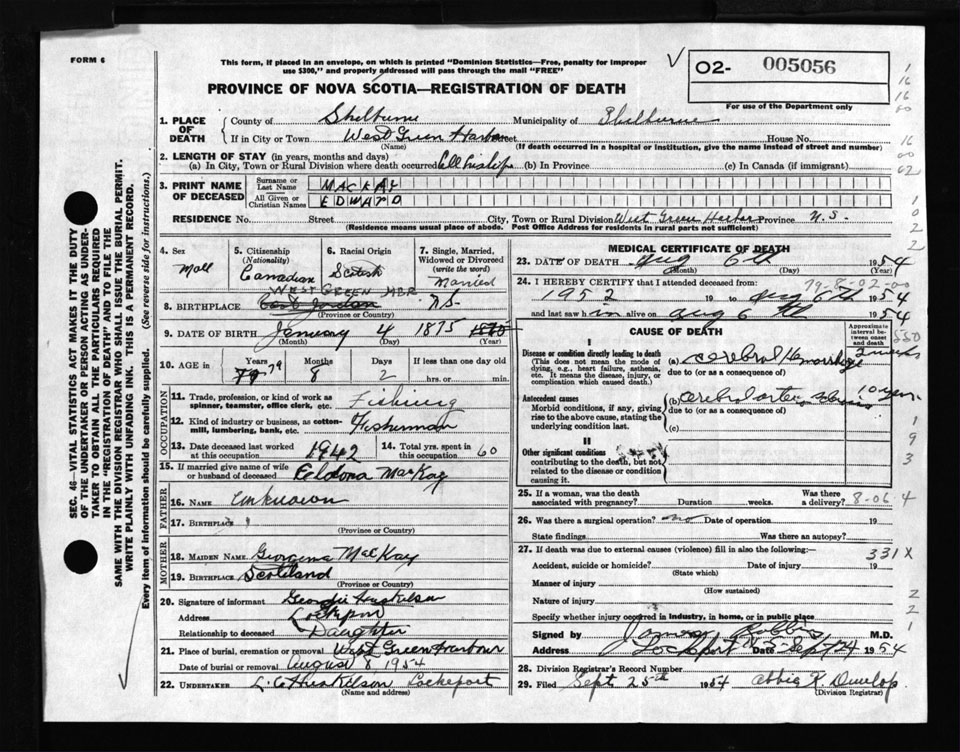 FORM 6
This form, if placed in an envelope, on which is printed "Dominion Statistics—Free, penalty for improper
use $300," and properly addressed will pass through the mail "FREE"
PROVINCE OF NOVA SCOTIA—REGISTRATION OF DEATH
02- 005056
For use of the Department only
1. PLACE OF DEATH
County of Shelburne Municipality of Shelburne
If in City or Town West Green Harbor Street House No.
(Name) (If death occurred in a hospital or institution, give the name instead of street and number)
2. LENGTH OF STAY (in years, months and days)
(a) In City, Town or Rural Division where death occurred All his life (b) In Province (c) In Canada (if immigrant)
3. PRINT NAME OF DECEASED
Surname or Last Name MACKAY
All Given or Christian Names EDWARD
RESIDENCE No. Street City, Town or Rural Division West Green Harbor Province N.S.
(Residence means usual place of abode. Post Office Address for residents in rural parts not sufficient)
4. Sex Male
5. Citizenship (Nationality) Canadian
6. Racial Origin Scotch
7. Single, Married, Widowed or Divorced (write the word) Married
WEST GREEN HBR
8. BIRTHPLACE East Jordan N.S.
(Province or Country)
9. DATE OF BIRTH January 4 1875
(Month) (Day) (Year)
10. AGE in Years 79 79 Months 8 Days 2 If less than one day old hrs. or min.
OCCUPATION
11. Trade, profession, or kind of work as spinner, teamster, office clerk, etc. Fishing
12. Kind of industry or business, as cotton-mill, lumbering, bank, etc. Fisherman
13. Date deceased last worked at this occupation 1942
14. Total yrs. spent in this occupation 60
15. If married give name of wife or husband of deceased MacKay
FATHER
16. NAME Unknown
17. BIRTHPLACE
(Province or Country)
MOTHER
18. MAIDEN NAME Georgina MacKay
19. BIRTHPLACE Scotland
(Province or Country)
20. Signature of informant Georgie Huskilson
Address Lockeport
Relationship to deceased Daughter
21. Place of burial, cremation or removal West Green Harbour
Date of burial or removal August 8 1954
22. UNDERTAKER L. C. Huskilson Lockeport
(Name and address)
MEDICAL CERTIFICATE OF DEATH
23. DATE OF DEATH Aug 6th 1954
(Month) (Day) (Year)
79-8-02-00
24. I HEREBY CERTIFY that I attended deceased from:
1952 19 to Aug 6th 1954
and last saw him alive on Aug 6th 1954
CAUSE OF DEATH
Approximate interval between onset and death
I
Disease or condition directly leading to death (a) Cerebral Hemorrhage 2 weeks
(This does not mean the mode of dying, e.g., heart failure, asthenia, etc. It means the disease, injury, or complication which caused death.)
due to (or as a consequence of)
Antecedent causes (b) Cerebral arteriosclerosis 10 yrs.
Morbid conditions, if any, giving rise to the above cause, stating the underlying condition last.
due to (or as a consequence of)
(c)
II
Other significant conditions
contributing to the death, but not related to the disease or condition causing it.
25. If a woman, was the death associated with pregnancy? Duration weeks. Was there a delivery? 8-06 4
26. Was there a surgical operation? no Date of operation 19
State findings Was there an autopsy?
27. If death was due to external causes (violence) fill in also the following:— 331X
Accident, suicide or homicide? Date of injury 19
(State which)
Manner of injury
(How sustained)
Nature of injury
Specify whether injury occurred in industry, in home, or in public place
Signed by James Robbins M.D.
Address Lockeport N.S. Date Sept 24 1954
28. Division Registrar's Record Number
29. Filed Sept 25th 1954 Abbie R. Dunlop
(Division Registrar)
SEC. 46—VITAL STATISTICS ACT MAKES IT THE DUTY
OF THE UNDERTAKER OR PERSON ACTING AS UNDER-
TAKER TO OBTAIN ALL THE PARTICULARS REQUIRED
IN THE "REGISTRATION OF DEATH" AND TO FILE THE
SAME WITH THE DIVISION REGISTRAR WHO SHALL ISSUE THE BURIAL PERMIT.
WRITE PLAINLY WITH UNFADING INK. THIS IS A PERMANENT RECORD.
Every item of information should be carefully supplied. (See reverse side for instructions.)